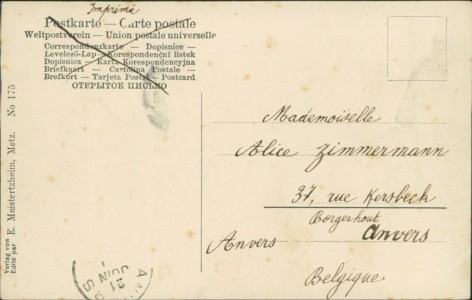 Imprimé
Postkarte — Carte postale
Weltpostverein — Union postale universelle
Correspondenzkarte — Dopisnice —
Levelező-Lap — Korespondenční listek
Dopisnica — Karta Korespondencyjna
Briefkaart — Cartolina Postale —
Brefkort — Tarjeta Postal — Postcard
ОТКРЫТОЕ ПИСЬМО
Mademoiselle
Alice Zimmermann
37, rue Kersbeck
Borgerhout
Anvers Anvers
Belgique
21
JUIN
Verlag von
Edité par E. Meistertzheim, Metz. No 175